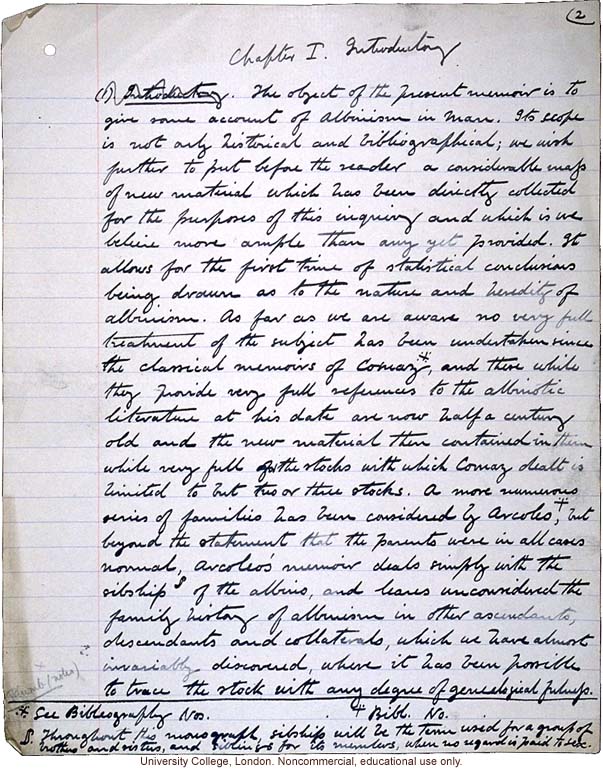 (2
Chapter I. Introductory
(1) Introductory. The object of the present memoir is to
give some account of Albinism in Man. Its scope
is not only historical and bibliographical; we wish
further to put before the reader a considerable mass
of new material which has been directly collected
for the purposes of this inquiry and which is we
believe more ample than any yet provided. It
allows for the first time of statistical conclusions
being drawn as to the nature and heredity of
albinism. As far as we are aware no very full
treatment of the subject has been undertaken since
the classical memoirs of Cornaz*, and these while
they provide very full references to the albinotic
literature at his date are now half a century
old and the new material then contained in them
while very full for the stocks with which Cornaz dealt is
limited to but two or three stocks. A more numerous
series of families has been considered by Arcoleo‡, but
beyond the statement that the parents were in all cases
normal, Arcoleo's memoir deals simply with the
sibship§ of the albino, and leaves unconsidered the
family history of albinism in other ascendants,
descendants and collaterals, which we have almost
invariably discovered, where it has been possible
to trace the stock with any degree of genealogical fulness.
(notes)
* See Bibliography Nos. . ‡ Bibl. No. .
§. Throughout this monograph, sibship will be the term used for a group of
brothers and sisters, and siblings for its members, when no regard is paid to sex.
University College, London. Noncommercial, educational use only.